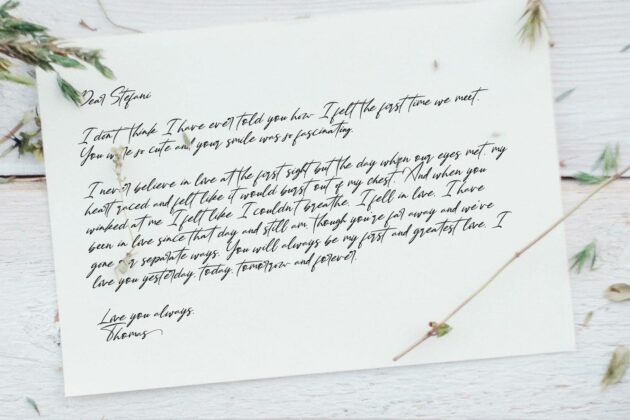 Dear Stefani
I don't think I have ever told you how I felt the first time we meet.
You were so cute and your smile was so fascinating.
I never believe in love at the first sight but the day when our eyes met, my
heart raced and felt like it would burst out of my chest. And when you
winked at me I felt like I couldn't breathe. I fell in love. I have
been in love since that day and still am though you're far away and we've
gone our separate ways. You will always be my first and greatest love. I
love you yesterday, today, tomorrow and forever.
Love you always,
Thomas